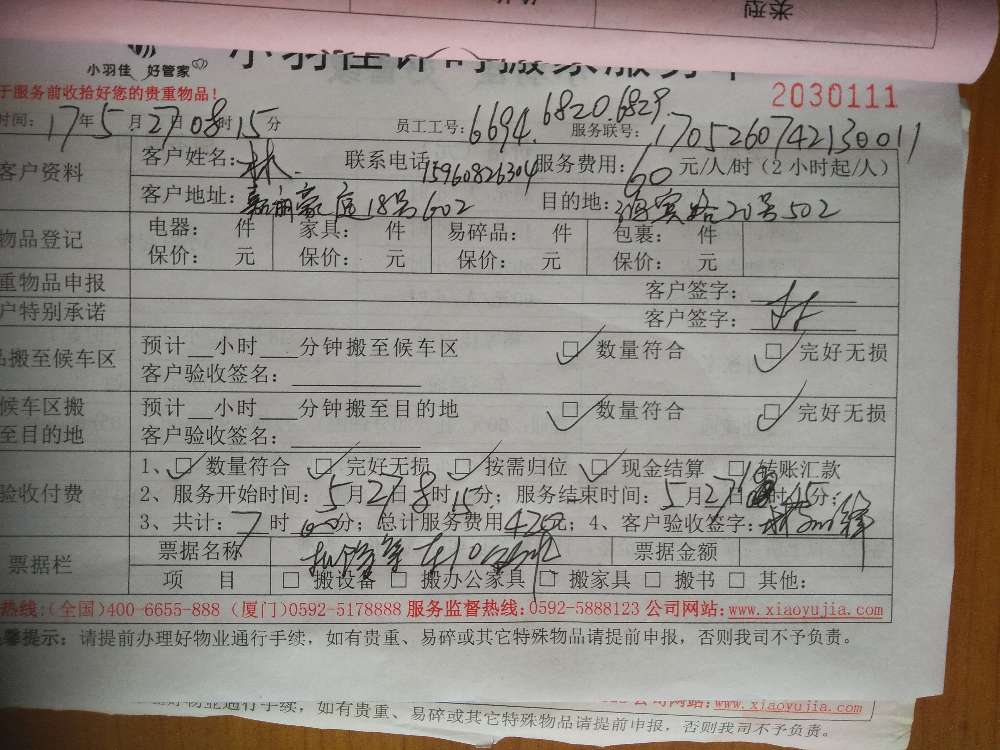 类型
小羽佳 好管家
小羽佳计时搬家服务单
于服务前收拾好您的贵重物品!
2030111
时间: 17年5月27日08时15分 员工工号: 6694. 6820. 6829. 服务联号: 17052607421300011
客户资料
客户姓名: 林. 联系电话 15960826304 服务费用: 60 元/人/时（2小时起/人）
客户地址: 嘉丽豪庭18号602 目的地: 20号502
物品登记
电器: 件 家具: 件 易碎品: 件 包裹: 件
保价: 元 保价: 元 保价: 元 保价: 元
重物品申报 客户签字:
户特别承诺 客户签字: 林
品搬至候车区
预计__小时___分钟搬至候车区 ☑ 数量符合 ☑ 完好无损
客户验收签名:
候车区搬至目的地
预计__小时___分钟搬至目的地 ☑ 数量符合 ☑ 完好无损
客户验收签名:
验收付费
1、☑ 数量符合 ☑ 完好无损 ☑ 按需归位 ☑ 现金结算 □ 转账汇款
2、服务开始时间: 5月27日8时15分; 服务结束时间: 5月27日 时15分;
3、共计: 7时00分; 总计服务费用420元; 4、客户验收签字:
票据栏
票据名称 票据金额
项 目 □ 搬设备 □ 搬办公家具 □ 搬家具 □ 搬书 □ 其他:
热线:(全国)400-6655-888 (厦门)0592-5178888 服务监督热线:0592-5888123 公司网站:www.xiaoyujia.com
温馨提示: 请提前办理好物业通行手续，如有贵重、易碎或其它特殊物品请提前申报，否则我司不予负责。
公司网站:www.xiaoyujia.com
好物业通行手续，如有贵重、易碎或其它特殊物品请提前申报，否则我司不予负责。